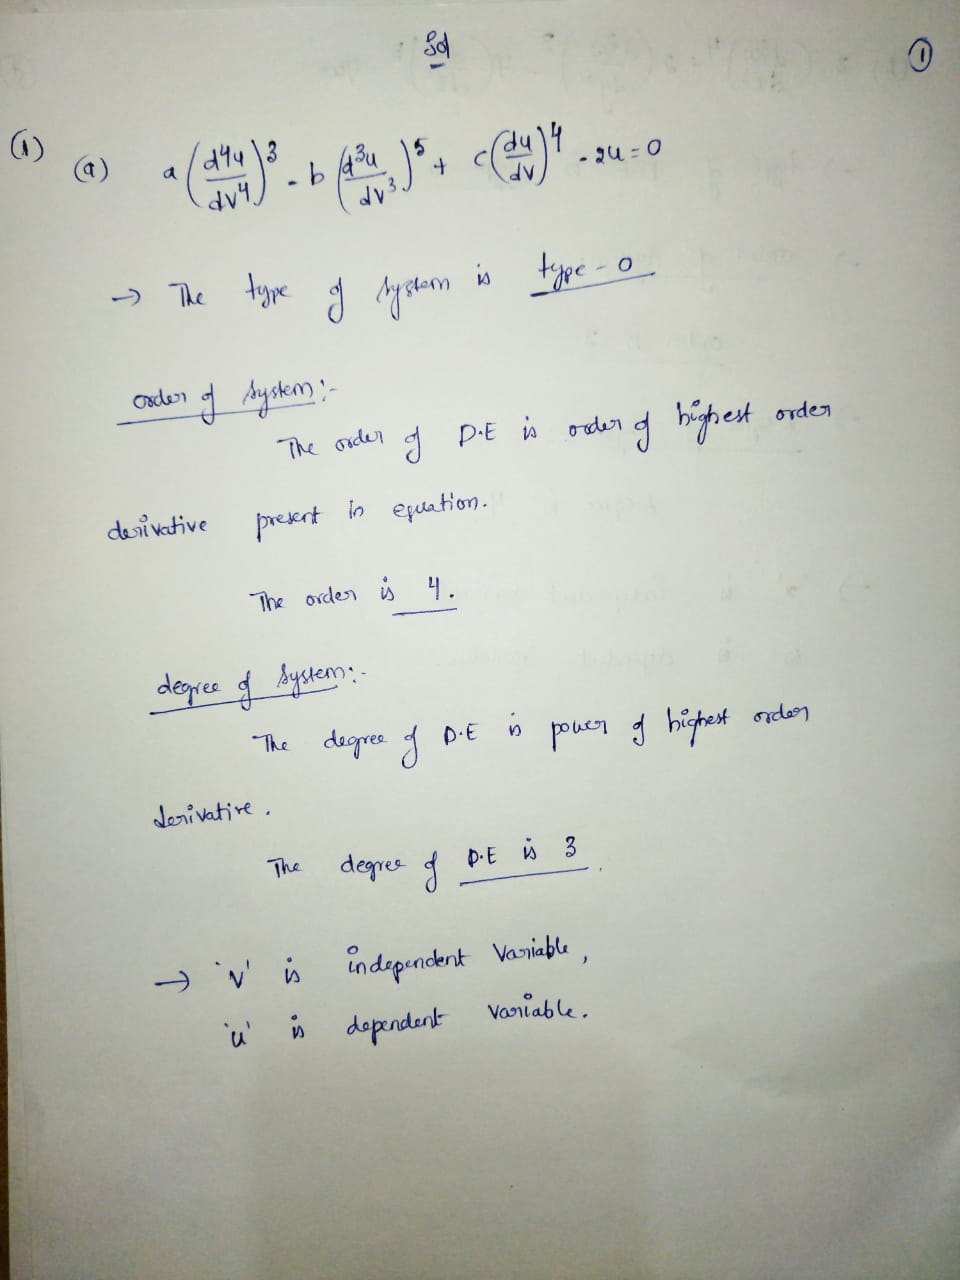 Sol
①
(1) (a) a(d⁴u/dv⁴)³ - b(d³u/dv³)⁵ + c(du/dv)⁴ - 2u = 0
→ The type of system is type - 0
order of system:-
The order of D.E is order of highest order
derivative present in equation.
The order is 4.
degree of system:-
The degree of D.E is power of highest order
derivative.
The degree of D.E is 3.
→ 'v' is independent variable,
'u' is dependent variable.